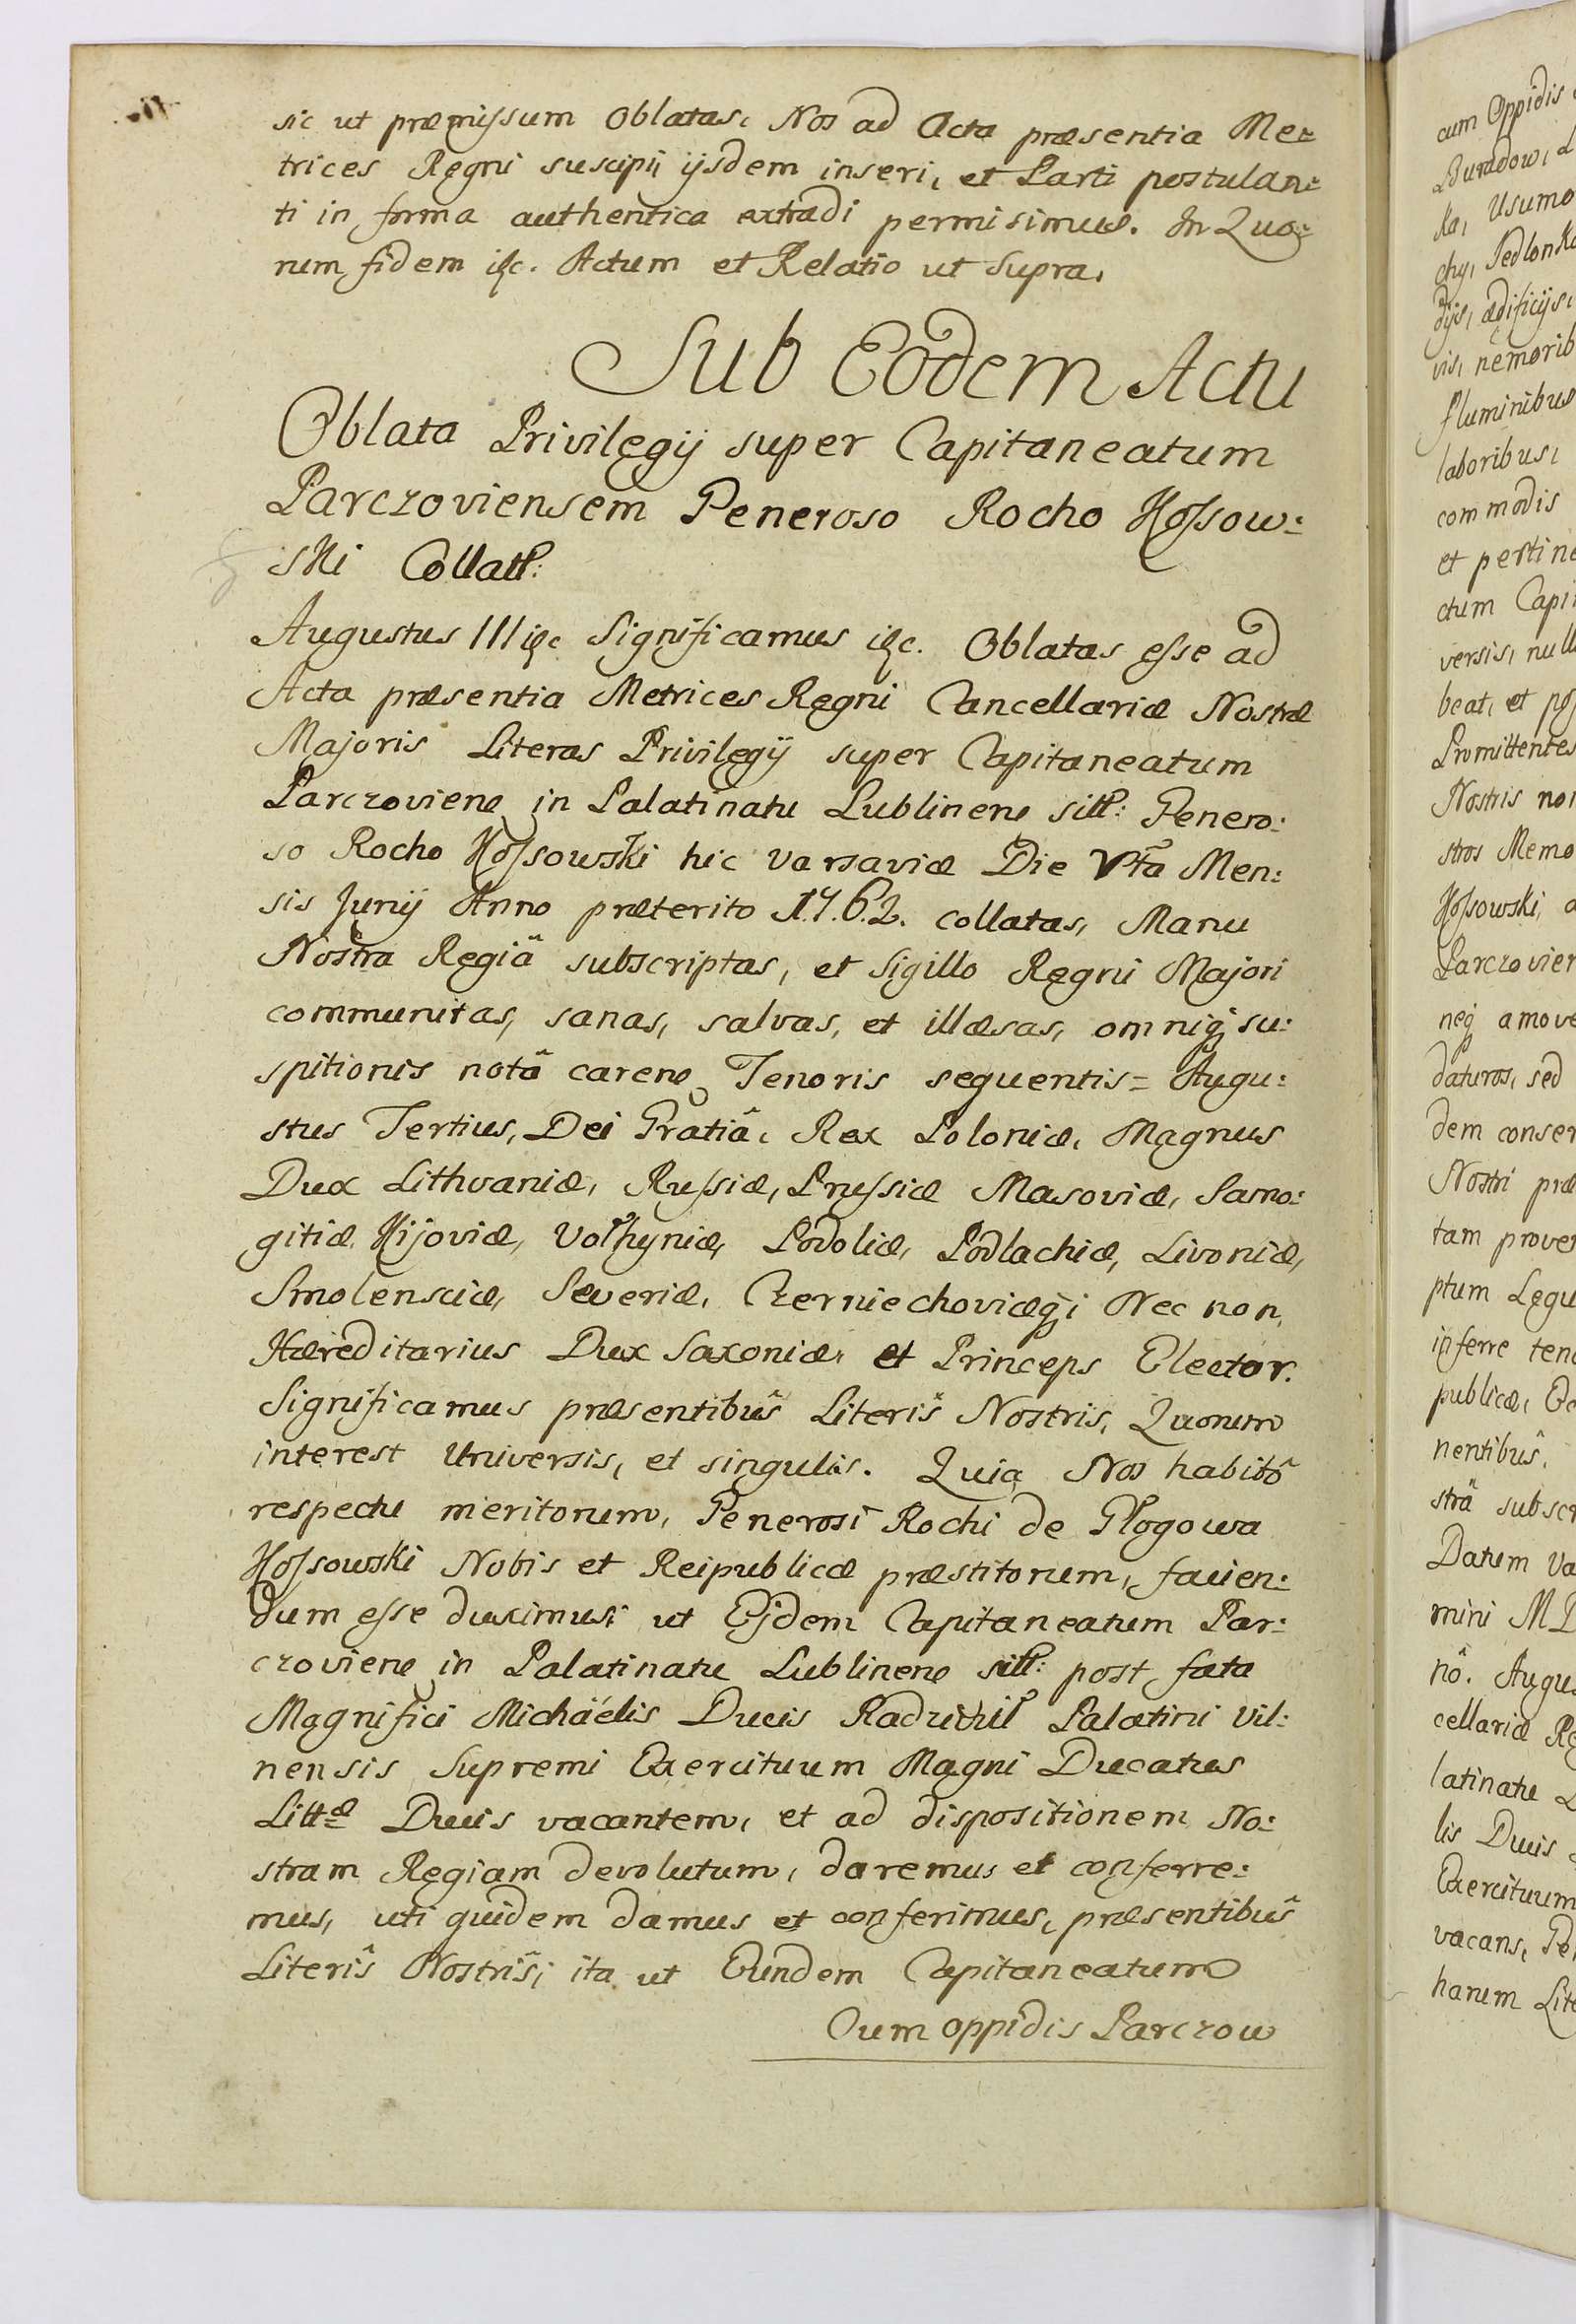 sic ut præmissum oblatas, Nos ad Acta præsentia Me=
trices Regni suscipi, ijsdem inseri, et Parti postulan=
ti in forma authentica extradi permisimus. In Quo=
rum fidem &c. Actum et Relatio ut Supra.
Sub Eodem Actu
Oblata Privilegij super Capitaneatum
Parczoviensem Generoso Rocho Kossow:
ski Collatt:
Augustus III &c Significamus &c. Oblatas esse ad
Acta præsentia Metrices Regni Cancellariæ Nostræ
Majoris Literas Privilegij super Capitaneatum
Parczovien in Palatinatu Lublinen sitt: Genero:
so Rocho Kossowski hic Varsaviæ Die Vta Men:
sis Junij Anno præterito 1762. collatas, Manu
Nostra Regiâ subscriptas, et Sigillo Regni Majori
communitas, sanas, salvas, et illæsas, omniq su:
spitionis notâ caren Tenoris sequentis = Augu:
stus Tertius, Dei Gratiâ, Rex Poloniæ, Magnus
Dux Lithvaniæ, Russiæ, Prussiæ Masoviæ, Samo:
gitiæ, Kijoviæ, Volhyniæ, Podoliæ, Podlachiæ, Livoniæ,
Smolensciæ, Severiæ, Czerniechoviæq; Nec non
Hæreditarius Dux Saxoniæ, et Princeps Elector.
Significamus præsentibûs Literis Nostris, Quorum
interest Universis, et singulis. Quia Nos habitô
respectu meritorum, Generosi Rochi de Głogowa
Kossowski Nobis et Reipublicæ præstitorum, facien:
dum esse duximus; ut Ejdem Capitaneatum Par:
czovien in Palatinatu Lublinen sitt: post fata
Magnifici Michäelis Ducis Radziwił Palatini Vil:
nensis Supremi Exercituum Magni Ducatus
Littæ Ducis vacantem, et ad dispositionem No:
stram Regiam devolutum, daremus et conferre:
mus, uti quidem damus et conferimus, præsentibûs
Literîs Nostrîs; ita ut Eundem Capitaneatum
Cum oppidis Parczow
cum Oppidis
ka, Usumo
dijs, ædificijs,
vis, nemorib
fluminibus
laboribus,
commodis
et pertine
ctum Capi
versis, null
beat, et pos
Promittentes
Nostris non
stros Memo
Kossowski, a
Parczovien
neq amove
daturos, sed
dem conser
Nostri præ
tam prove
ptum Legu
inferre tene
publicæ, Ec
nentibûs.
strâ subscr
Datum Va
mini MD
nô. Augus
cellariæ Re
latinatu L
lis Ducis
Exercituum
vacans, Ge
harum Lite